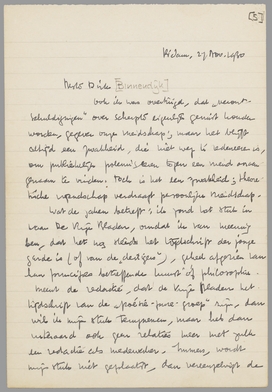 [5]
A'dam, 27. Nov. 1930
Beste Dick [Binnendijk]
Ook ik was overtuigd, dat „veront-
schuldigingen" over scherpte eigenlijk gemist konden
worden, gegeven onze vriendschap; maar het blijft
altijd een zwakheid, die niet weg te redeneeren is,
om publiekelijk polemisch tegen een vriend
te vinden. Toch is het een zwakheid;
vriendschap verdraagt persoonlijke vriendschap.
Wat de zaken betreft: ik zond het stuk in
voor De Vrije Bladen, omdat ik van meening
ben, dat het nog steeds het tijdschrift der jonge
garde is (of van de dertigers), geheel afgezien van
hun principes betreffende kunst of philosophie.
Meent de redactie, dat de Vrije Bladen het
tijdschrift van de „poésie-pure-groep" zijn, dan
wil ik mijn stuk terugnemen, maar het dan
uiteraard ook geen relatie meer met zulk
een redactie als medewerker. Immers, wordt
mijn stuk niet geplaatst, dan vereenzelvigt de